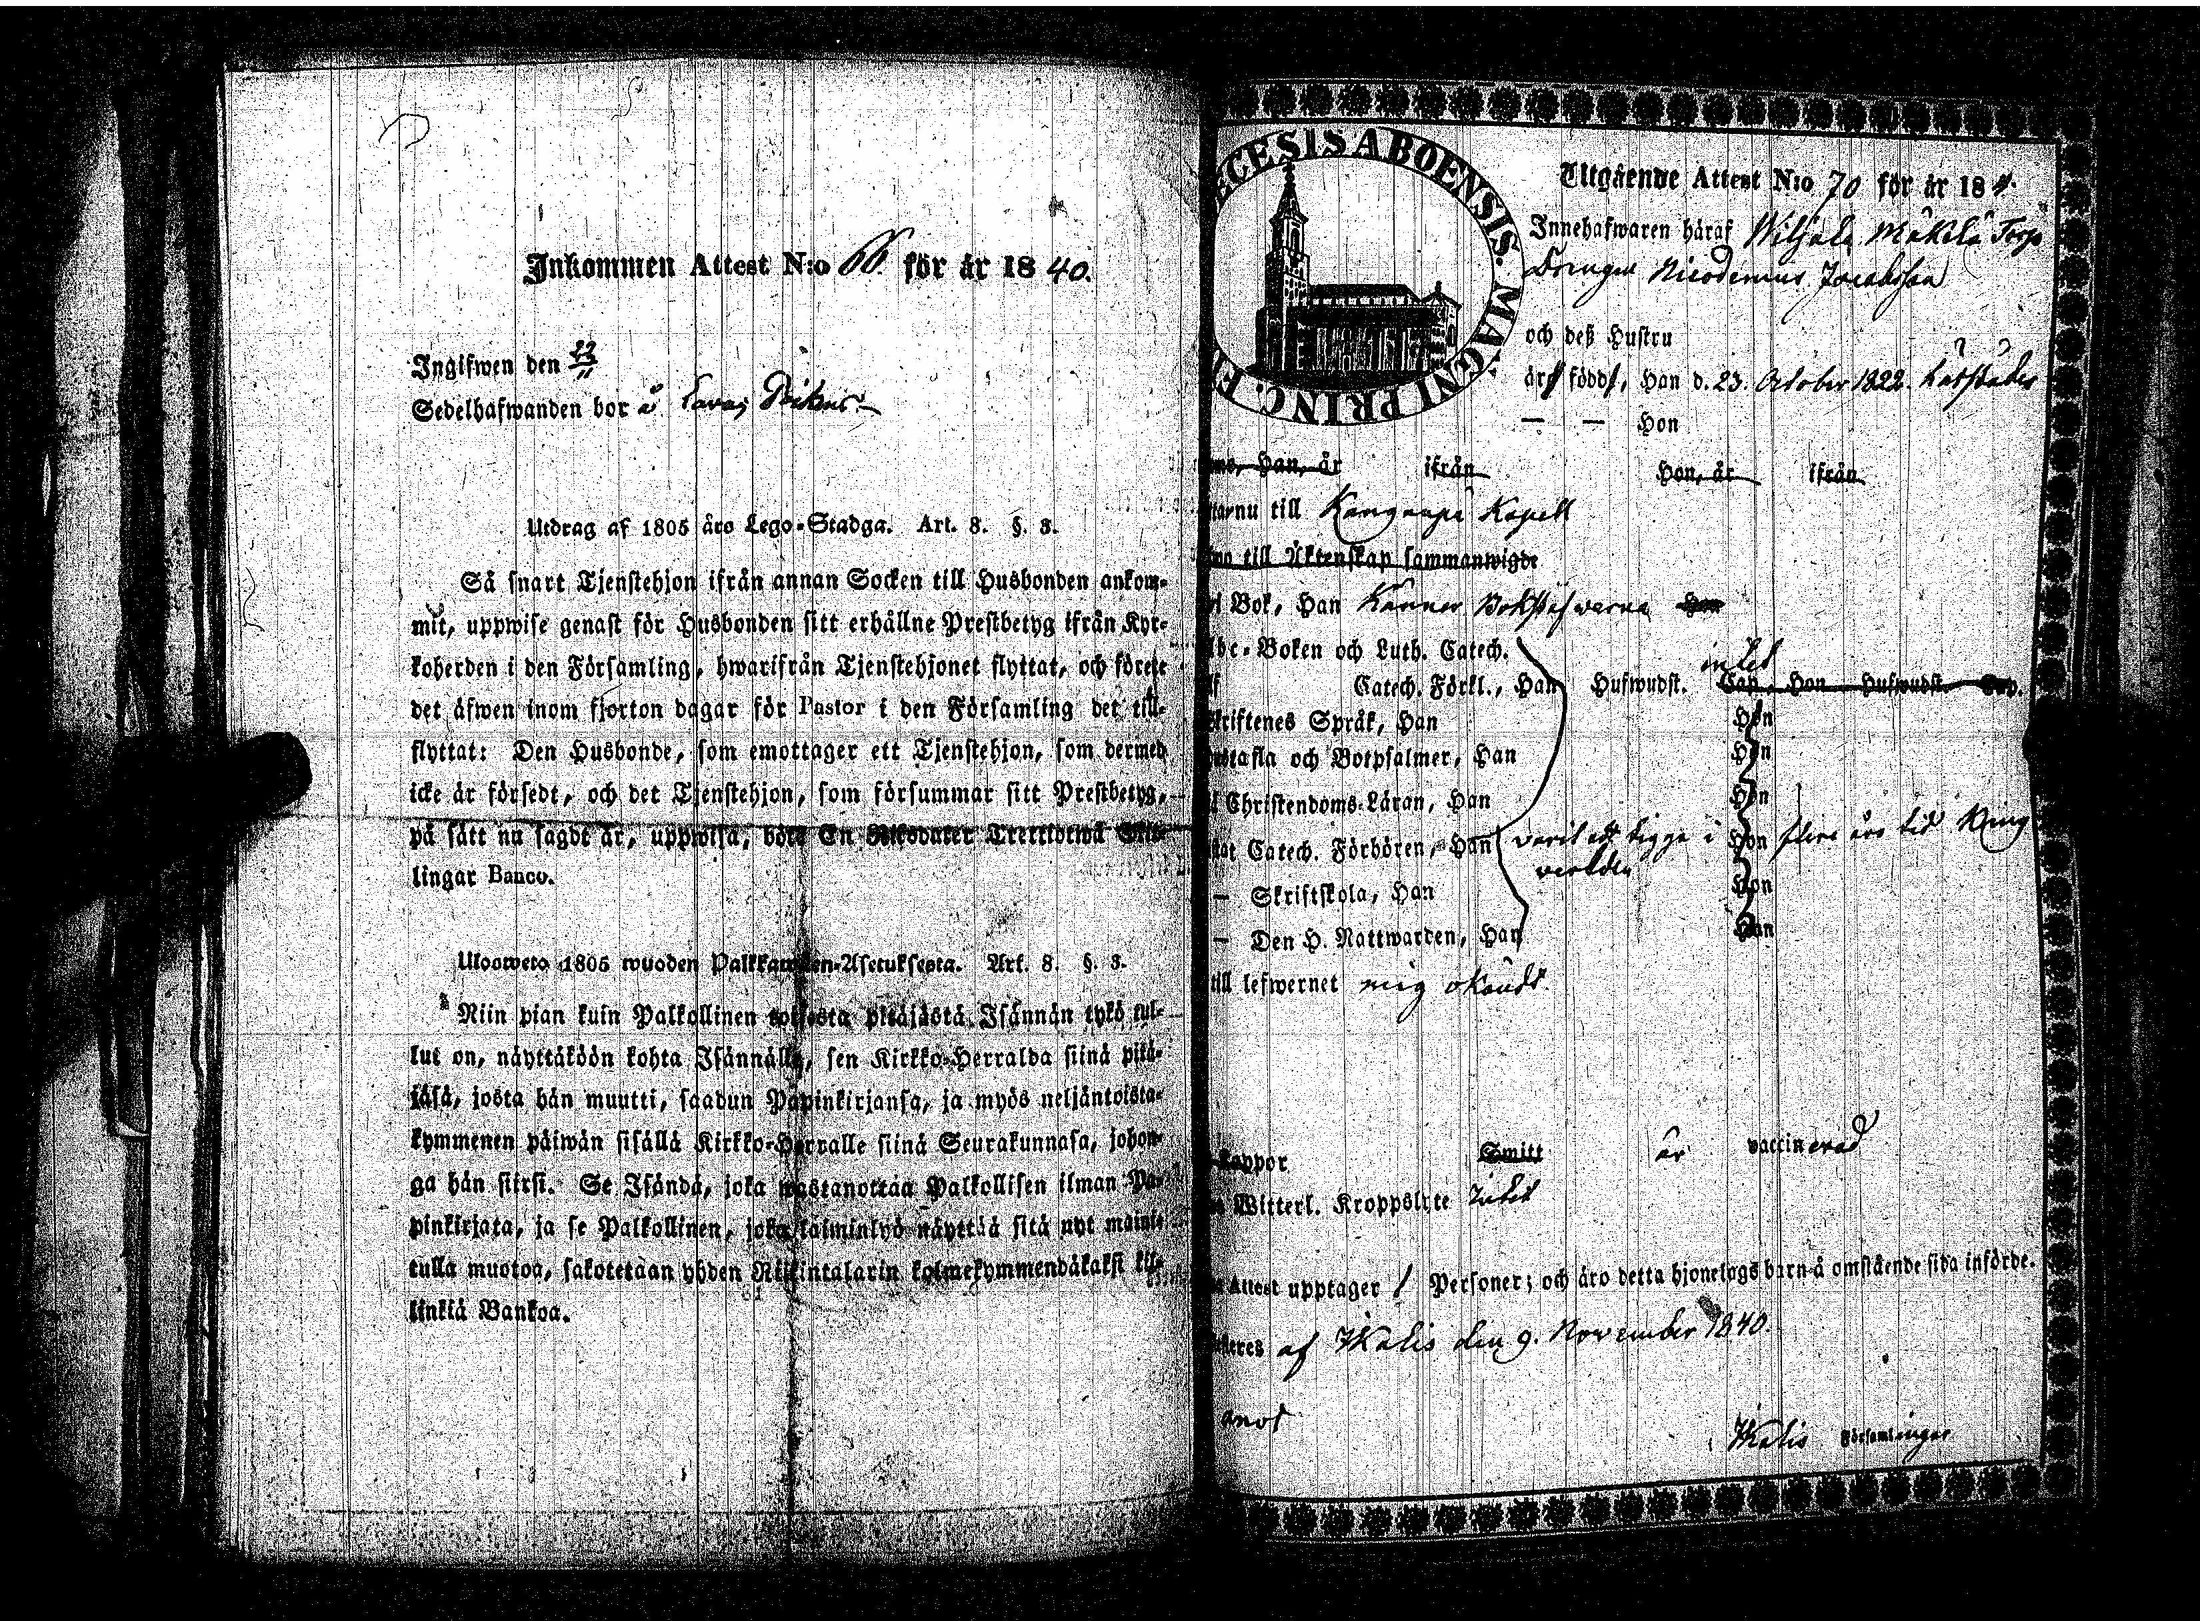 Inkommen Attest N:o 66 för år 1840.
Ingifwen den 22/11
Sedelhafwanden bor å
Utdrag af 1805 års Lego-Stadga. Art. 8. §. 3.
Så snart Tjenstehjon ifrån annan Socken till Husbonden ankom-
mit, uppwise genast för Husbonden sitt erhållne Prestbetyg ifrån Kyr-
koherden i den Församling, hwarifrån Tjenstehjonet flyttat, och förete
det äfwen inom fjorton dagar för Pastor i den Församling det till-
flyttat: Den Husbonde, som emottager ett Tjenstehjon, som dermed
icke är försedt, och det Tjenstehjon, som försummar sitt Prestbetyg,
på sätt nu sagdt är, uppwisa, böte En Riksdaler Trettiotwå Skil-
lingar Banco.
Ulosweto 1805 wuoden Palkkawäen-Asetuksesta. Art. 8. §. 3.
Niin pian kuin Palkollinen toisesta pitäjästä Isännän tykö tul-
lut on, näyttäköön kohta Isännälle, sen Kirkko-Herralda siinä pitä-
jäsä, josta hän muutti, saadun Papinkirjansa, ja myös neljäntoista-
kymmenen päiwän sisällä Kirkko-Herralle siinä Seurakunnasa, johon-
ga hän siirsi. Se Isändä, joka wastanottaa Palkollisen ilman Pa-
pinkirjata, ja se Palkollinen, joka laiminlyö näyttää sitä nyt maini-
tulla muotoa, sakotetaan yhden Riikintalarin kolmekymmendäkaksi kil-
linkiä Bankoa.
ECESIS ABOENSIS. MAGNI PRINC. F
Utgående Attest N:o 70 för år 184
Innehafwaren häraf Wiljala Mäkelä Torp
Drengen Nicodemus Jacobsson
och deß Hustru
är född, Han d. 23. October 1822.
— — Hon
Han, år ifrån Hon, år ifrån
nu till Kangaspä Kapell
till Äktenskap sammanwigde
Bok, Han Känner Bokstäfwerna Hon
Abc-Boken och Luth. Catech.
intet
Catech. Förkl., Han Hufwudst. Cap. Hon Hufwudst. Cap.
Skriftenes Språk, Han Hon
och Botpsalmer, Han Hon
Christendoms-Läran, Han Hon
Catech. Förhören, Han varit att tigga i Hon flere års tid kring
verlden
— Skriftskola, Han Hon
— Den H. Nattwarden, Han Hon
till lefwernet mig okändt.
Koppor Smitt är vaccinerad
Witterl. Kroppslyte Intet
Attest upptager 1 Personer; och äro detta hjonelags barn å omstående sida införde.
af Ikalis den 9. November 1840.
Ikalis Församlingar